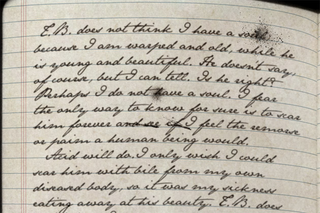 E.B. does not think I have a soul
because I am warped and old, while he
is young and beautiful. He doesn't say,
of course, but I can tell. Is he right?
Perhaps I do not have a soul. I fear
the only way to know for sure is to scar
him forever and see if I feel the remorse
or pain a human being would.
Acid will do. I only wish I could
scar him with bile from my own
diseased body, so it was my sickness
eating away at his beauty. E.B. does